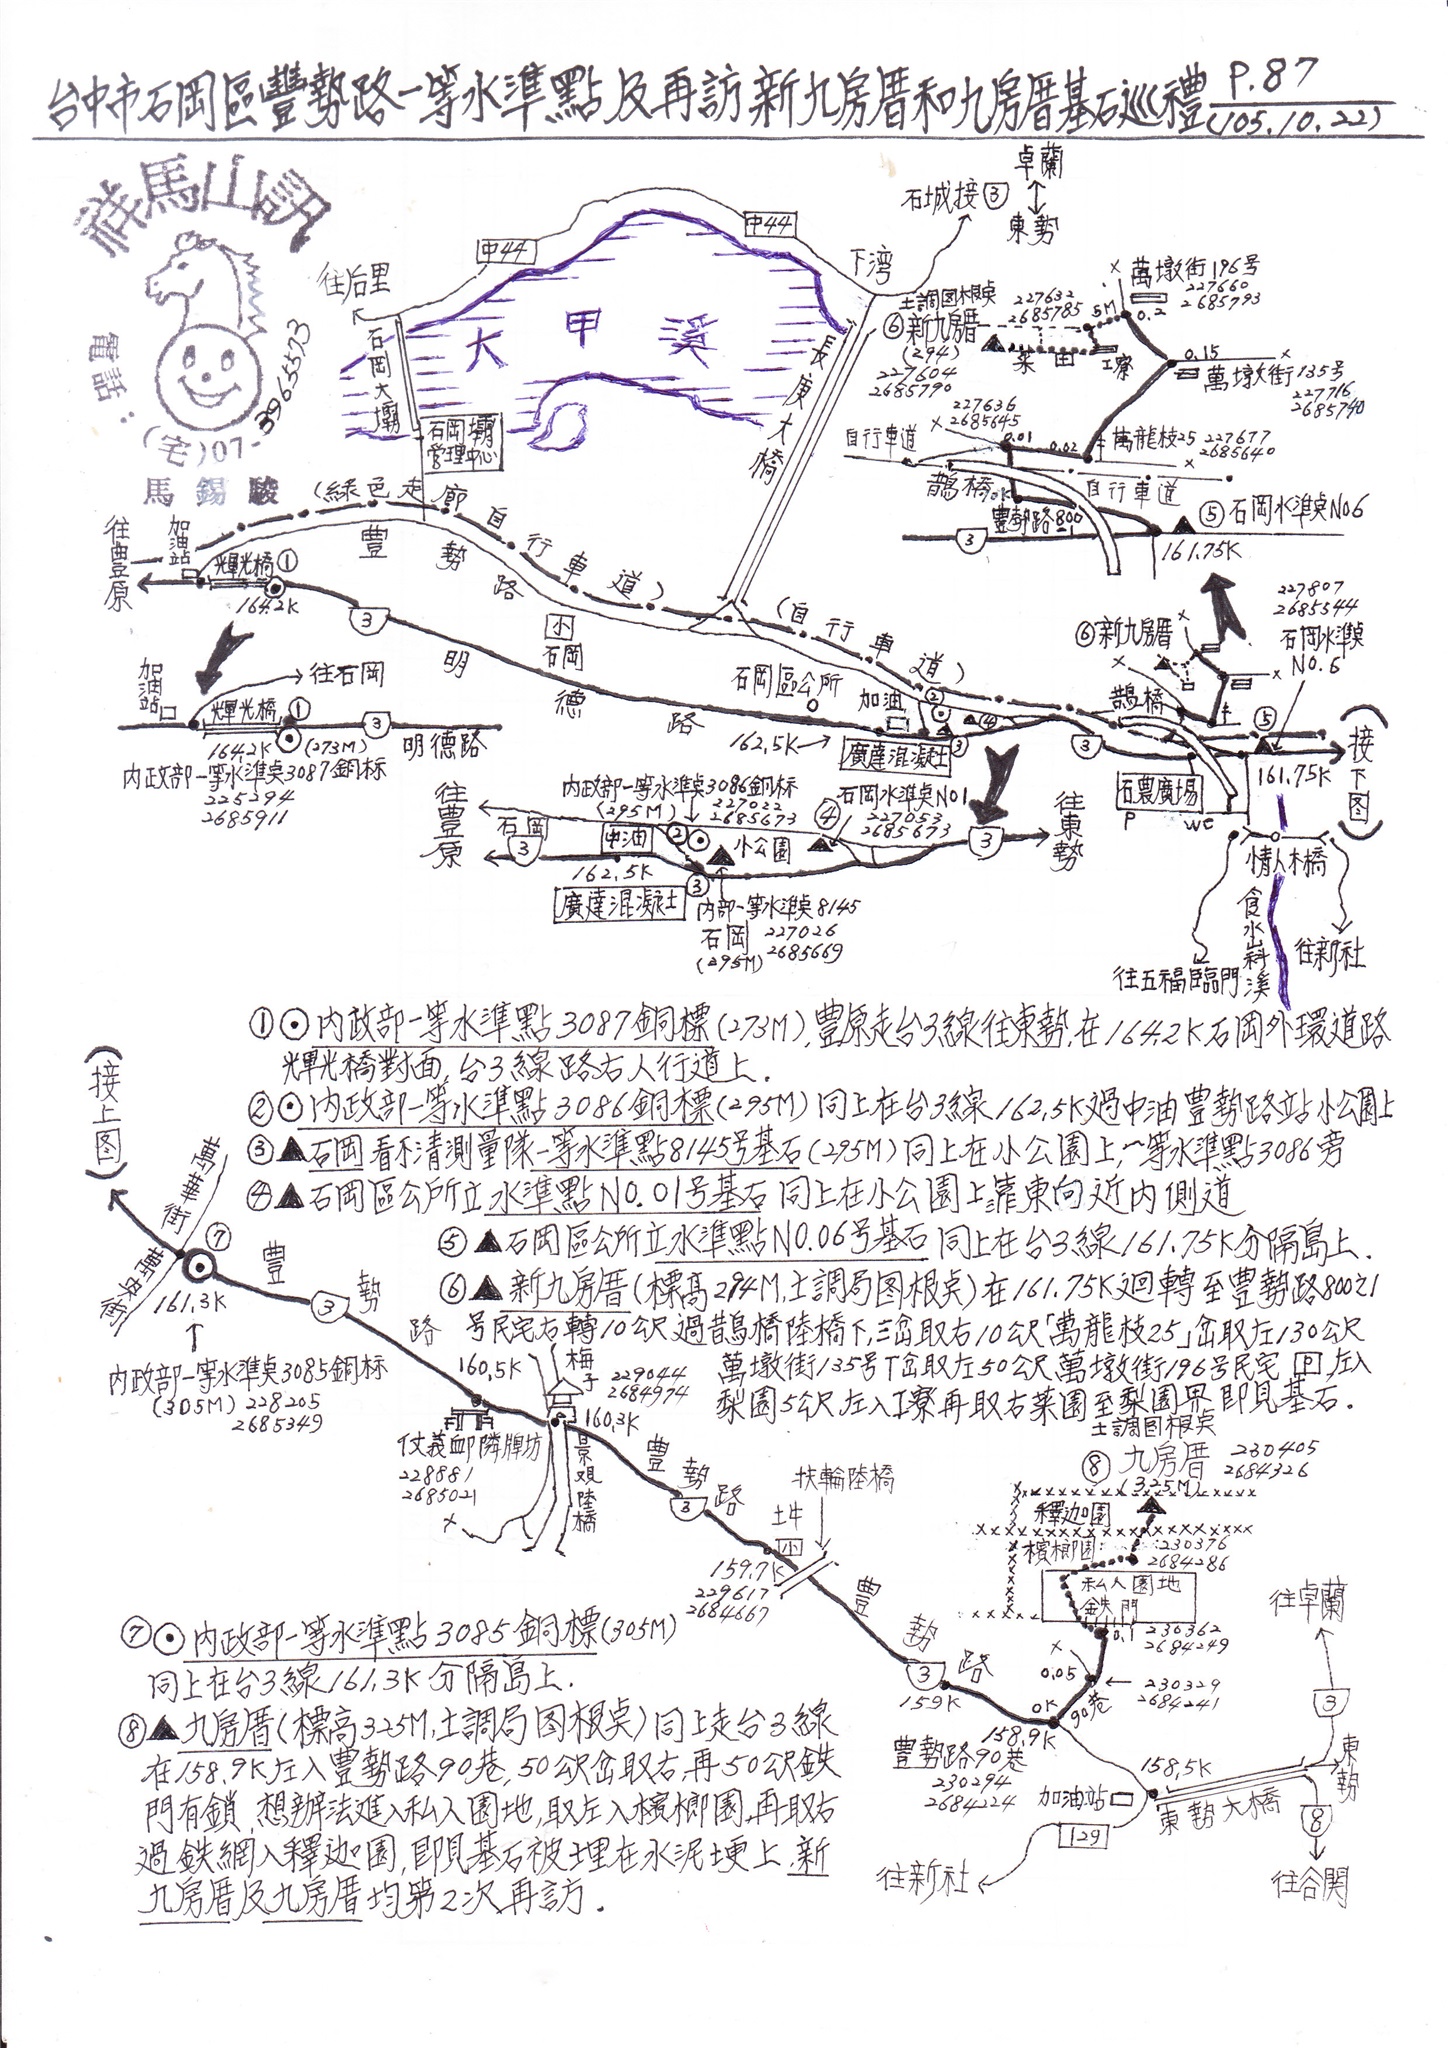 台中市石岡區豐勢路一等水準點及再訪新九房厝和九房厝基石巡禮 P.87
(105.10.22)
祥馬山訊
電話：
(宅)07-3965573
馬錫駿
卓蘭
東勢
石城接③
中44
中44
下湾
往后里
大甲溪
石岡大壩
石岡壩
管理中心
長庚大橋
土調图根点
⑥新九房厝
(294)
227604
2685790
227632
2685785
5M
菜田
工寮
萬墩街196号
227660
2685793
0.2
0.15
萬墩街135号
227716
2685740
227636
2685645
0.01
0.02
萬龍枝25
227677
2685640
自行車道
鵲橋
0K
自行車道
豊勢路800-1
3
⑤石岡水準点No6
161.75K
(綠色走廊自行車道)
豊勢路
往豊原
加油站
輝光橋①
164.2K
3
明德路
小
石岡
(自行車道)
石岡區公所
加油
②
④
③
162.5K→
廣達混凝土
3
⑥新九房厝
鵲橋
227807
2685544
石岡水準点
No.6
⑤
161.75K
(接下图)
石農廣場
P
WC
情人木橋
食水嵙溪
往五福臨門
往新社
加油站
往石岡
輝光橋
①
164.2K
(273M)
3
明德路
內政部一等水準点3087銅标
225294
2685911
內政部一等水準点3086銅标
(295M)
227022
2685673
石岡水準点No1
227053
2685673
④
往豊原
石岡
3
中油
②
小公園
162.5K
廣達混凝土
③
內部一等水準点8145
石岡
(295M)
227026
2685669
3
往東勢
①⊙內政部一等水準點3087銅標(273M),豊原走台3線往東勢,在164.2K石岡外環道路
輝光橋對面,台3線路右人行道上.
②⊙內政部一等水準點3086銅標(295M)同上在台3線162.5K過中油豊勢路站小公園上
③▲石岡看不清測量隊一等水準點8145号基石(295M)同上在小公園上,一等水準點3086旁
④▲石岡區公所立水準點NO.01号基石同上在小公園上靠東向近內側道
⑤▲石岡區公所立水準點NO.06号基石同上在台3線161.75K分隔島上.
⑥▲新九房厝(標高294M,土調局图根点)在161.75K迴轉至豊勢路800之1
号民宅右轉10公尺過鵲橋陸橋下,三岔取右10公尺「萬龍枝25」岔取左130公尺
萬墩街135号T岔取左50公尺萬墩街196号民宅P左入
梨園5公尺左入工寮再取右菜園至梨園界即見基石.
(接上图)
萬華街
⑦
161.3K
豊勢路
3
內政部一等水準点3085銅标
(305M)228205
2685349
160.5K
仗義卹隣牌坊
228881
2685021
梅子
景观陸橋
229044
2684974
160.3K
豊勢路
3
土牛
小
159.7K
229617
2684667
扶輪陸橋
豊勢路
3
159K
土調図根点
⑧九房厝
(325M)
230405
2684326
釋迦園
檳榔園
230376
2684286
私人園地
鉄門
0.1
230362
2684249
0.05
230329
2684241
0K
90巷
158.9K
豊勢路90巷
230294
2684224
加油站
129
往新社
158.5K
東勢大橋
東勢
3
往卓蘭
8
往谷関
⑦⊙內政部一等水準點3085銅標(305M)
同上在台3線161.3K分隔島上.
⑧▲九房厝(標高325M,土調局図根点)同上走台3線
在158.9K左入豊勢路90巷,50公尺岔取右,再50公尺鉄
門有鎖,想辦法進入私人園地,取左入檳榔園,再取右
過鉄網入釋迦園,即見基石被埋在水泥埂上,新
九房厝及九房厝均第2次再訪.